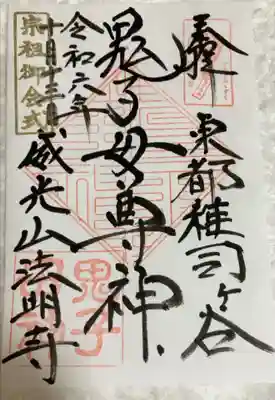 東都雑司ヶ谷
鬼子母尊神
令和六年
十月十三日
宗祖御会式
威光山法明寺
鬼子